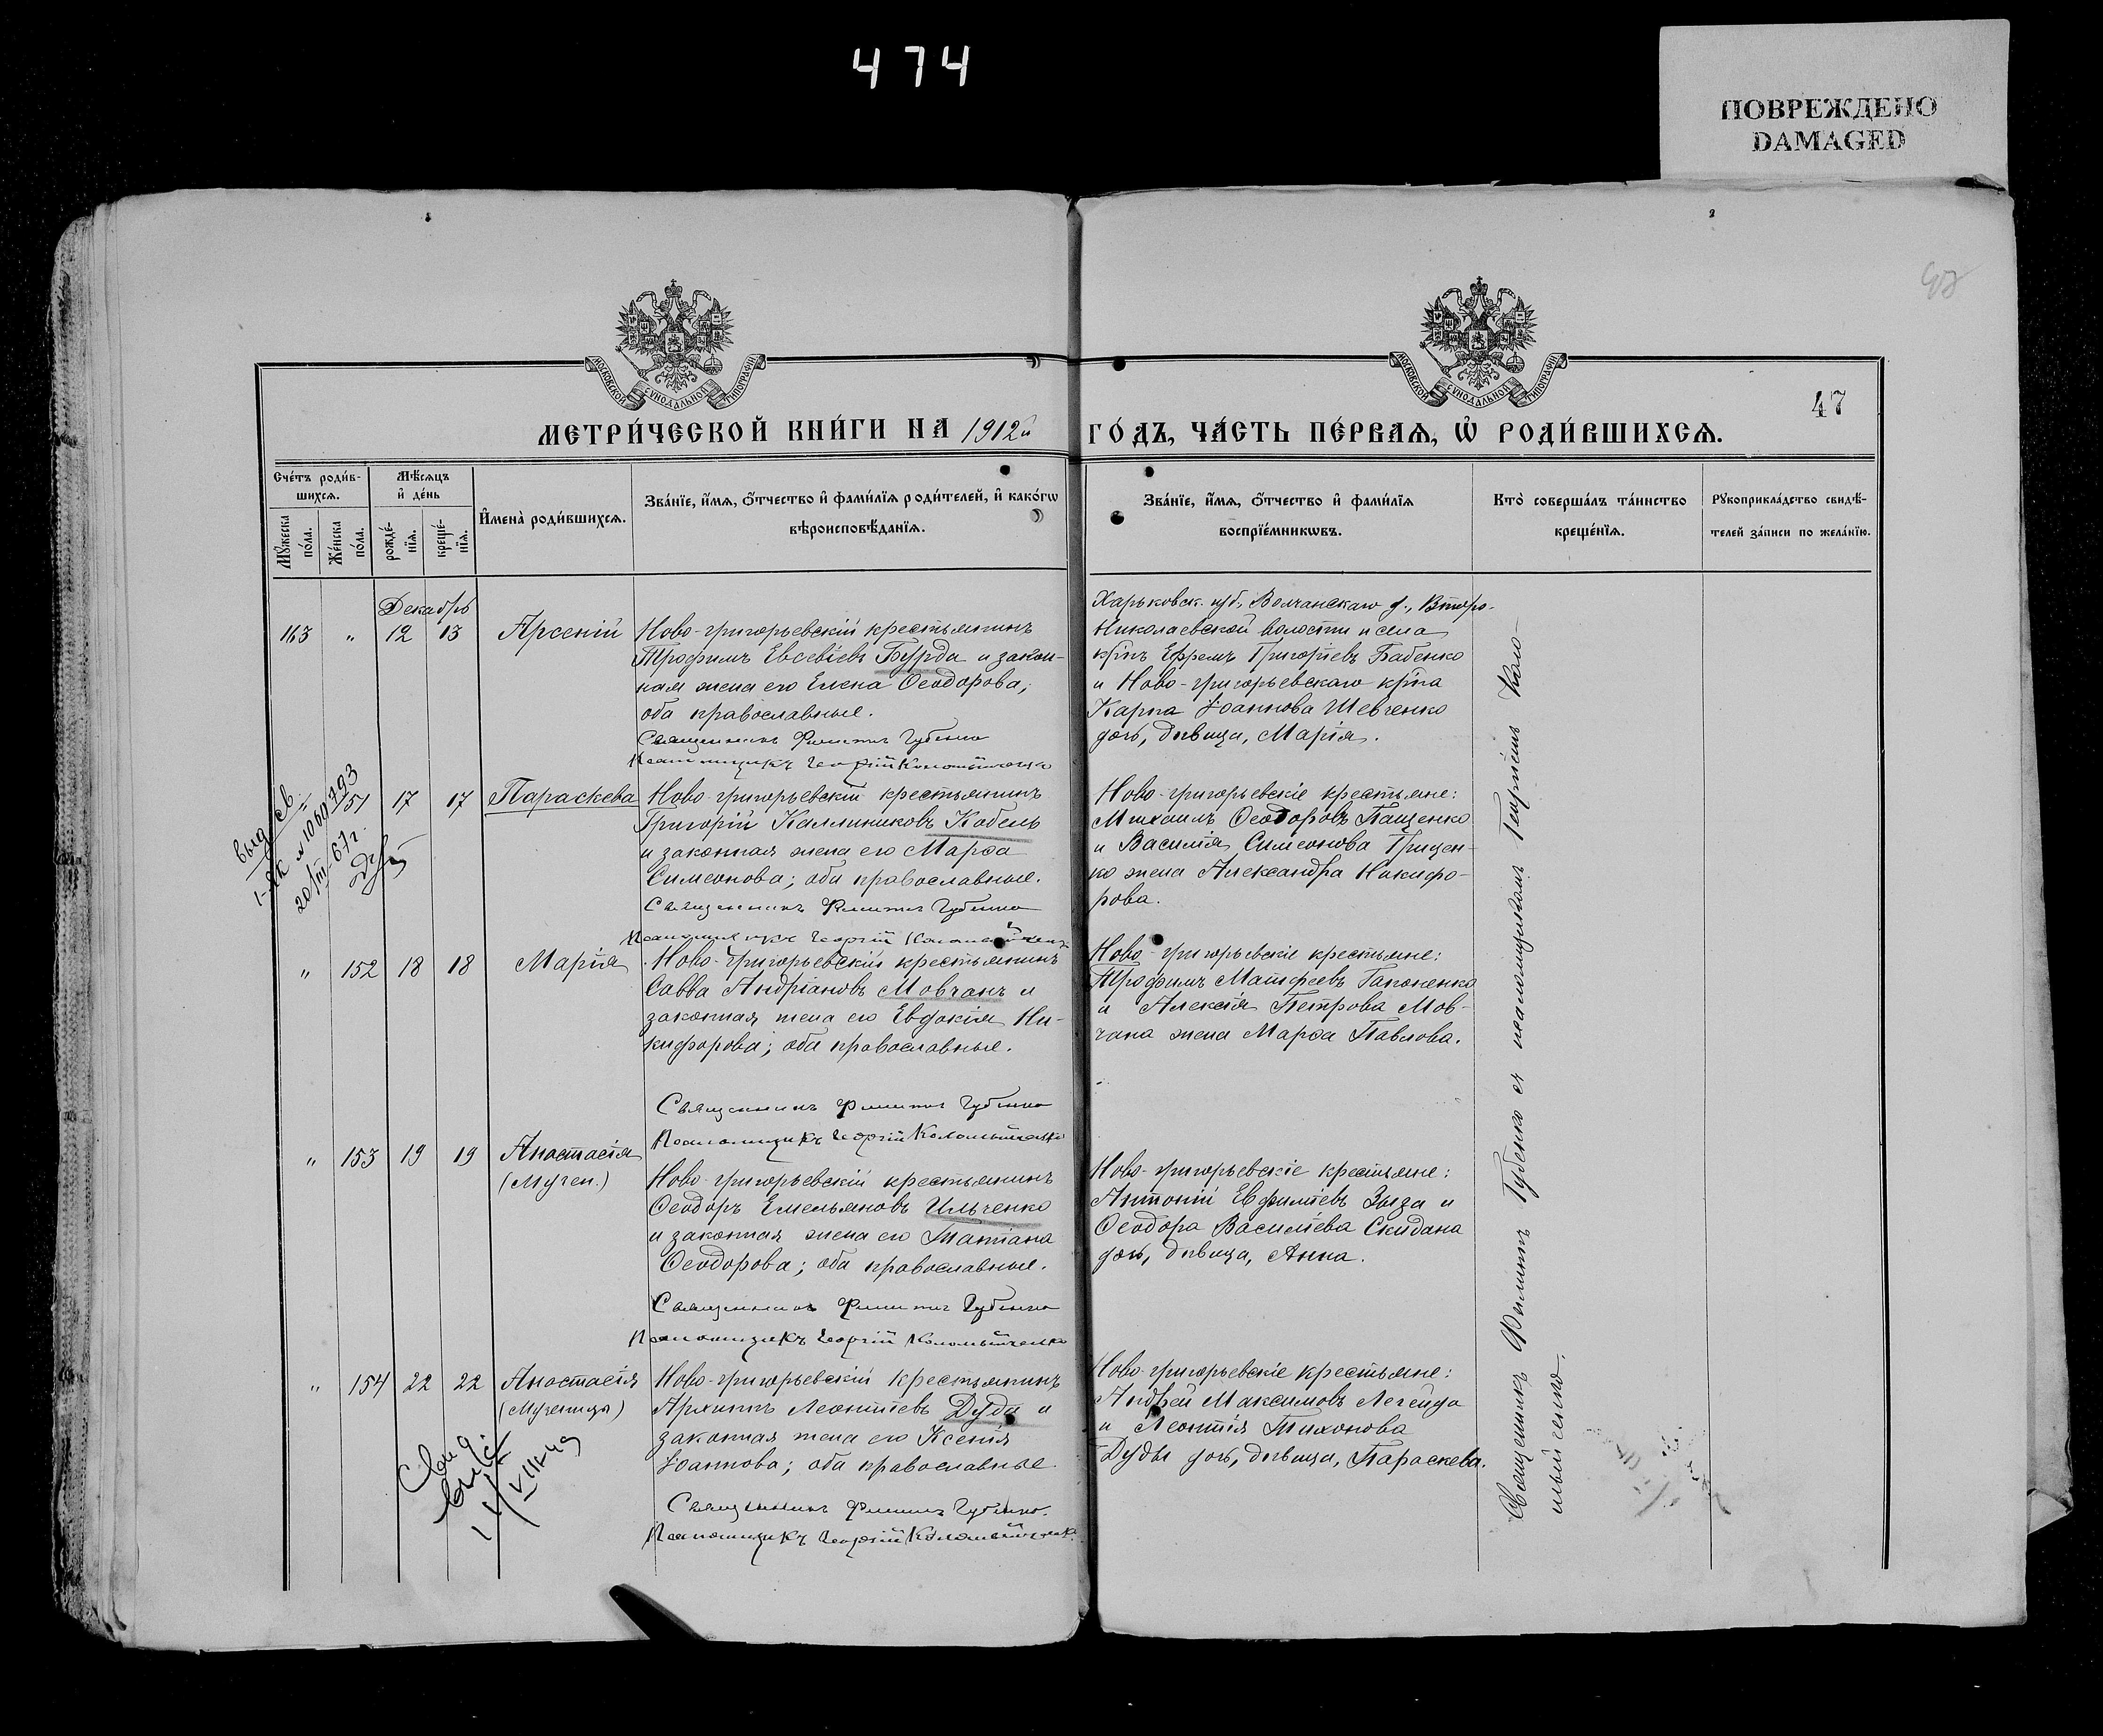 474
ПОВРЕЖДЕНО
DAMAGED
47
МОСКОВСКОЙ СѴНОДАЛЬНОЙ ТИПОГРАФІИ
МОСКОВСКОЙ СѴНОДАЛЬНОЙ ТИПОГРАФІИ
47
МЕТРИ́ЧЕСКОЙ КНИ́ГИ НА 1912й ГО́ДЪ, ЧА́СТЬ ПЕ́РВАѦ, Ѡ РОДИ́ВШИХСѦ.
Сче́тъ роди́в-
шихсѧ.
Мꙋ́жеска по́ла.
Же́нска по́ла.
Мѣ́сѧцъ
и҆ де́нь
рожде́-
нїѧ.
креще́-
нїѧ.
И҆мена̀ роди́вшихсѧ.
Зва́нїе, и҆́мѧ, ѻ҆́тчество и҆ фами́лїѧ роди́телей, и҆ како́гѡ
вѣроисповѣ́данїѧ.
Зва́нїе, и҆́мѧ, ѻ҆́тчество и҆ фами́лїѧ
воспрїе́мникѡвъ.
Кто̀ соверша́лъ та́инство
креще́нїѧ.
Рꙋкоприкла́дство свидѣ́-
телей за́писи по жела́нїю.
Декабрь
163 " 12 13 Арсеній
Ново-григорьевскій крестьянинъ
Трофимъ Евсевіевъ Бурда и закон-
ная жена его Елена Ѳеодорова;
оба православные.
Священникъ Филиппъ Губенко
Псаломщикъ Георгій Коломыйченко
Харьковск. губ., Волчанскаго у., Второ-
Николаевской волости и села
кр̃нъ Ефремъ Григоріевъ Бабенко
и Ново-григорьевскаго кр̃на
Карпа Іоаннова Шевченко
дочь, дѣвица, Марія.
выд. св.
I-ЯК №1060793
20/III-67г.
151 17 17 Параскева
Ново-григорьевскій крестьянинъ
Григорій Каллиниковъ Кобель
и законная жена его Марѳа
Симеонова; оба православные.
Священникъ Филиппъ Губенко
Псаломщикъ Георгій Коломыйченко
Ново-григорьевскіе крестьяне:
Михаилъ Ѳеодоровъ Пащенко
и Василія Симеонова Грицен-
ко жена Александра Никифо-
рова.
" 152 18 18 Марія
Ново-григорьевскій крестьянинъ
Савва Андріановъ Мовчанъ и
законная жена его Евдокія Ни-
кифорова; оба православные.
Священникъ Филиппъ Губенко
Псаломщикъ Георгій Коломыйченко
Ново-григорьевскіе крестьяне:
Трофимъ Матфеевъ Гапоненко
и Алексія Петрова Мов-
чана жена Марѳа Павлова.
" 153 19 19 Анастасія
(Мучен.)
Ново-григорьевскій крестьянинъ
Ѳеодоръ Емельяновъ Ильченко
и законная жена его Татіана
Ѳеодорова; оба православные.
Священникъ Филиппъ Губенко
Псаломщикъ Георгій Коломыйченко
Ново-григорьевскіе крестьяне:
Антоній Евфиміевъ Зыза и
Ѳеодора Василіева Скидана
дочь, дѣвица, Анна.
" 154 22 22 Анастасія
(Мученица)
Ново-григорьевскій крестьянинъ
Архиппъ Леонтіевъ Дуда и
законная жена его Ксенія
Іоаннова; оба православные
Священникъ Филиппъ Губенко.
Псаломщикъ Георгій Коломыйченко.
Ново-григорьевскіе крестьяне:
Андрей Максимовъ Легейда
и Леонтія Тихонова
Дуды дочь, дѣвица, Параскева.
Священникъ Филиппъ Губенко съ псаломщикомъ Георгіемъ Коло-
мыйченко.